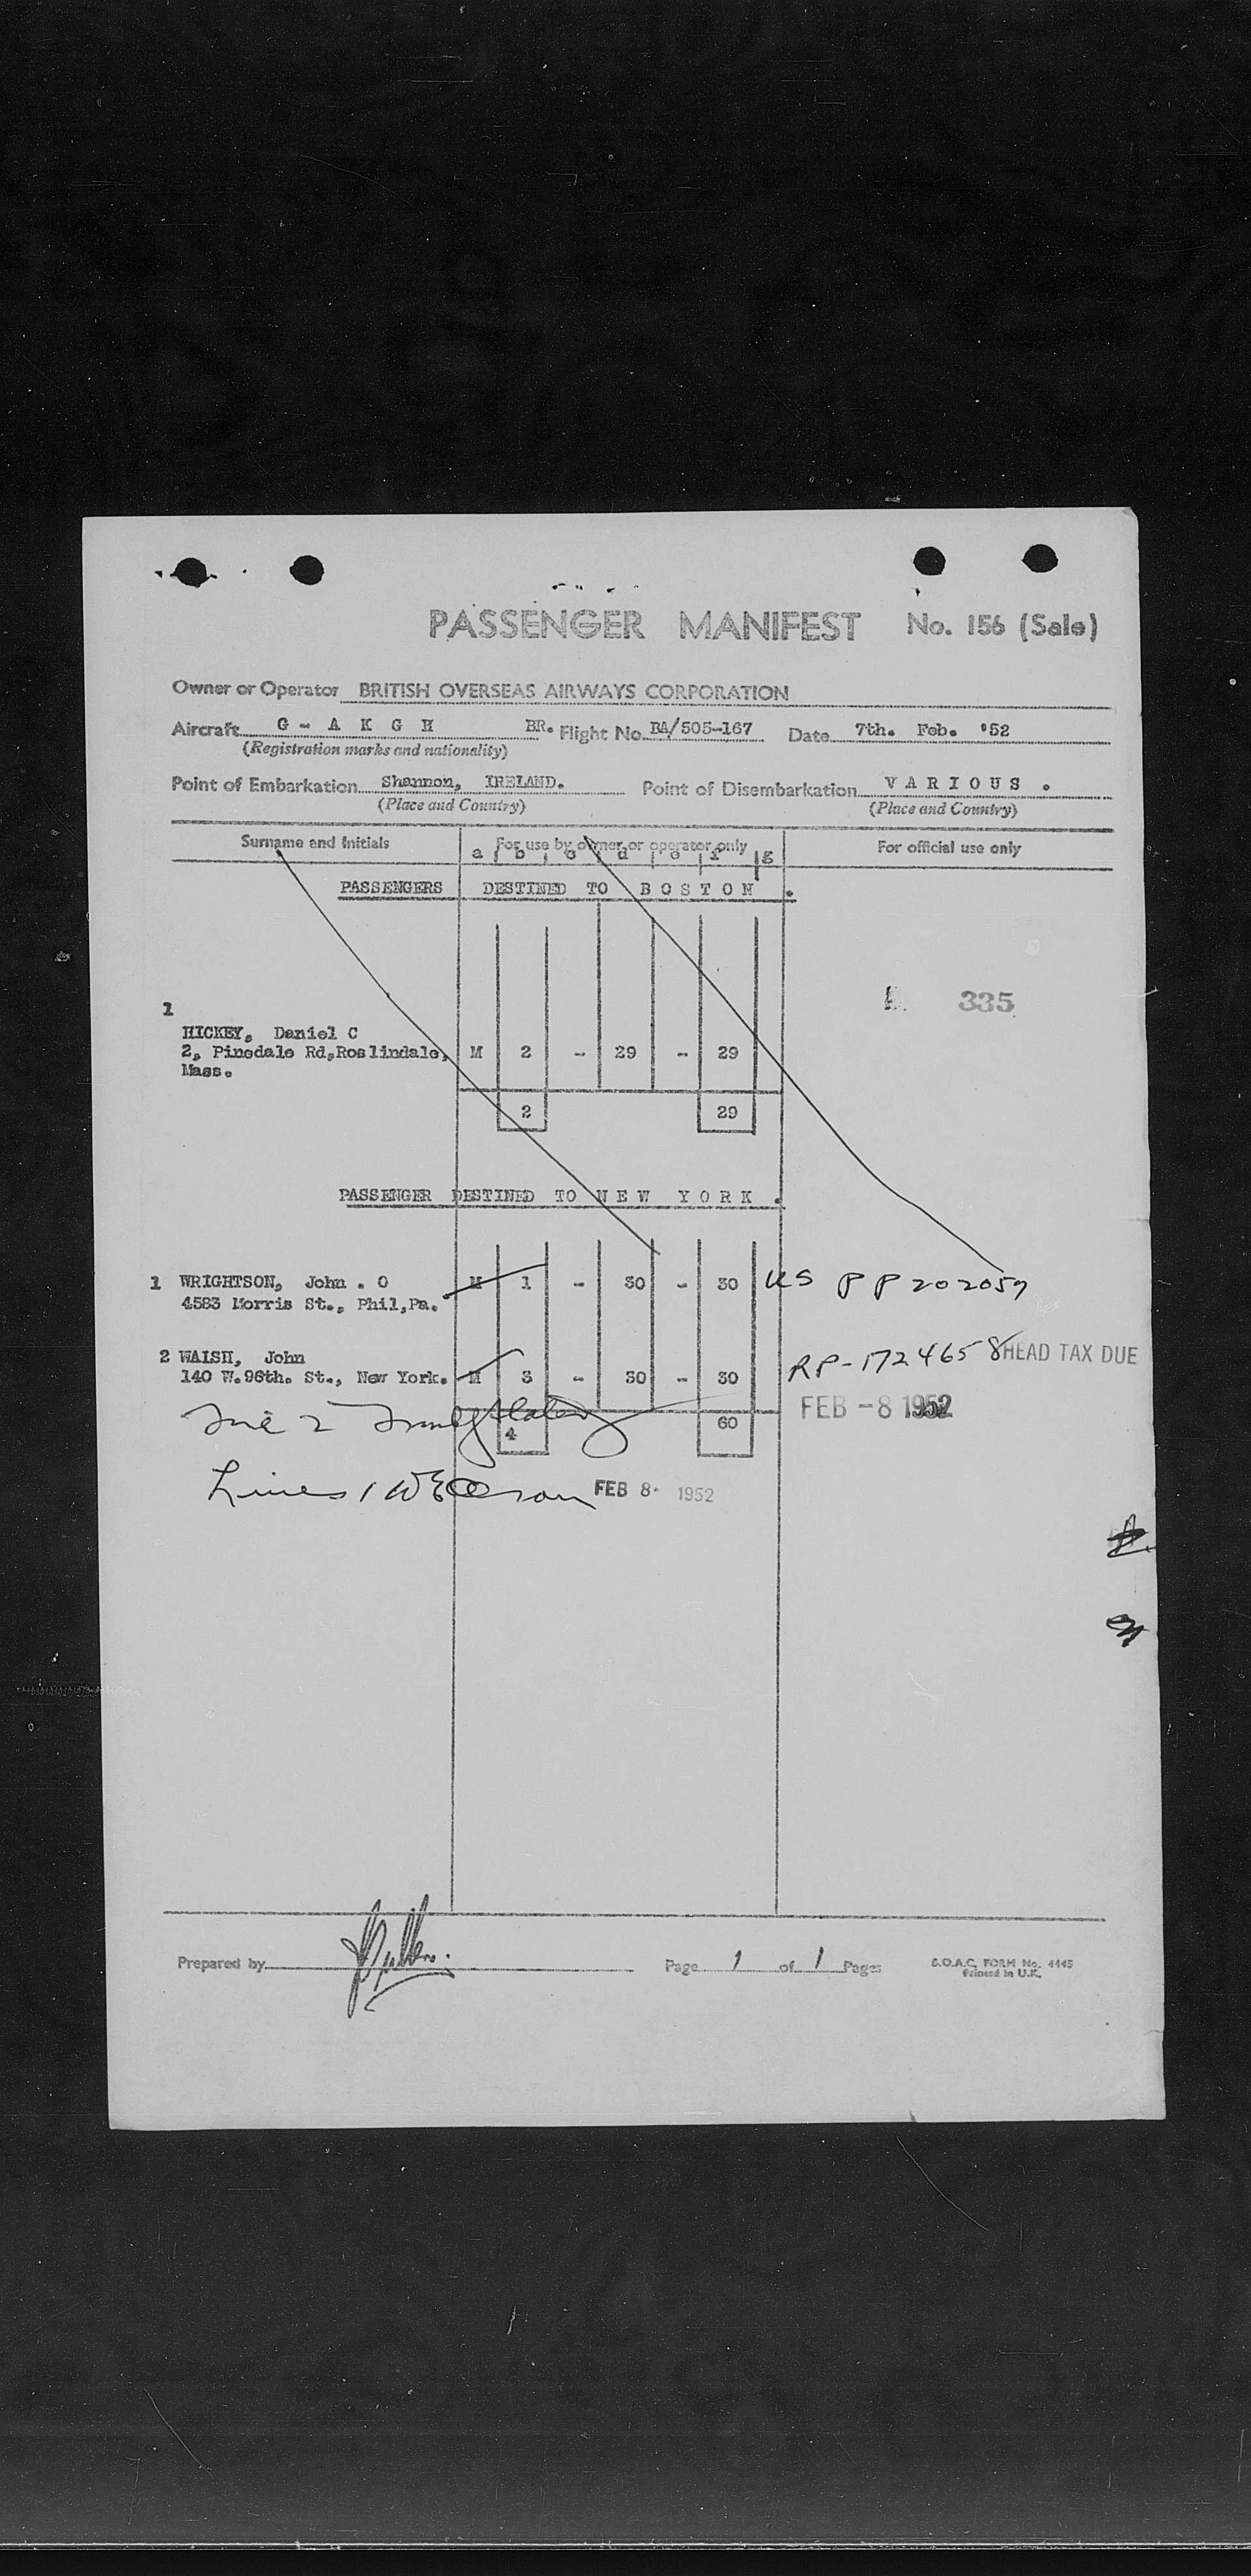 PASSENGER MANIFEST No. 156 (Sale)
Owner or Operator BRITISH OVERSEAS AIRWAYS CORPORATION
Aircraft G - A K G H BR. Flight No. BA/505-167 Date 7th. Feb. '52
(Registration marks and nationality)
Point of Embarkation Shannon, IRELAND. Point of Disembarkation V A R I O U S .
(Place and Country) (Place and Country)
Surname and Initials For use by owner or operator only For official use only
a b c d e f g
PASSENGERS DESTINED TO B O S T O N .
335
1
HICKEY, Daniel C
2, Pinedale Rd, Roslindale, M 2 - 29 - 29
Mass.
2 29
PASSENGER DESTINED TO N E W Y O R K .
1 WRIGHTSON, John . O M 1 - 30 - 30 US PP 202057
4583 Morris St., Phil, Pa.
2 WALSH, John RP-1724658 HEAD TAX DUE
140 W. 96th. St., New York. M 3 - 30 - 30
FEB - 8 1952
4 60
Lines 1 FEB 8- 1952
Prepared by Page 1 of 1 Pages
B.O.A.C. FORM No. 4445
Printed in U.K.